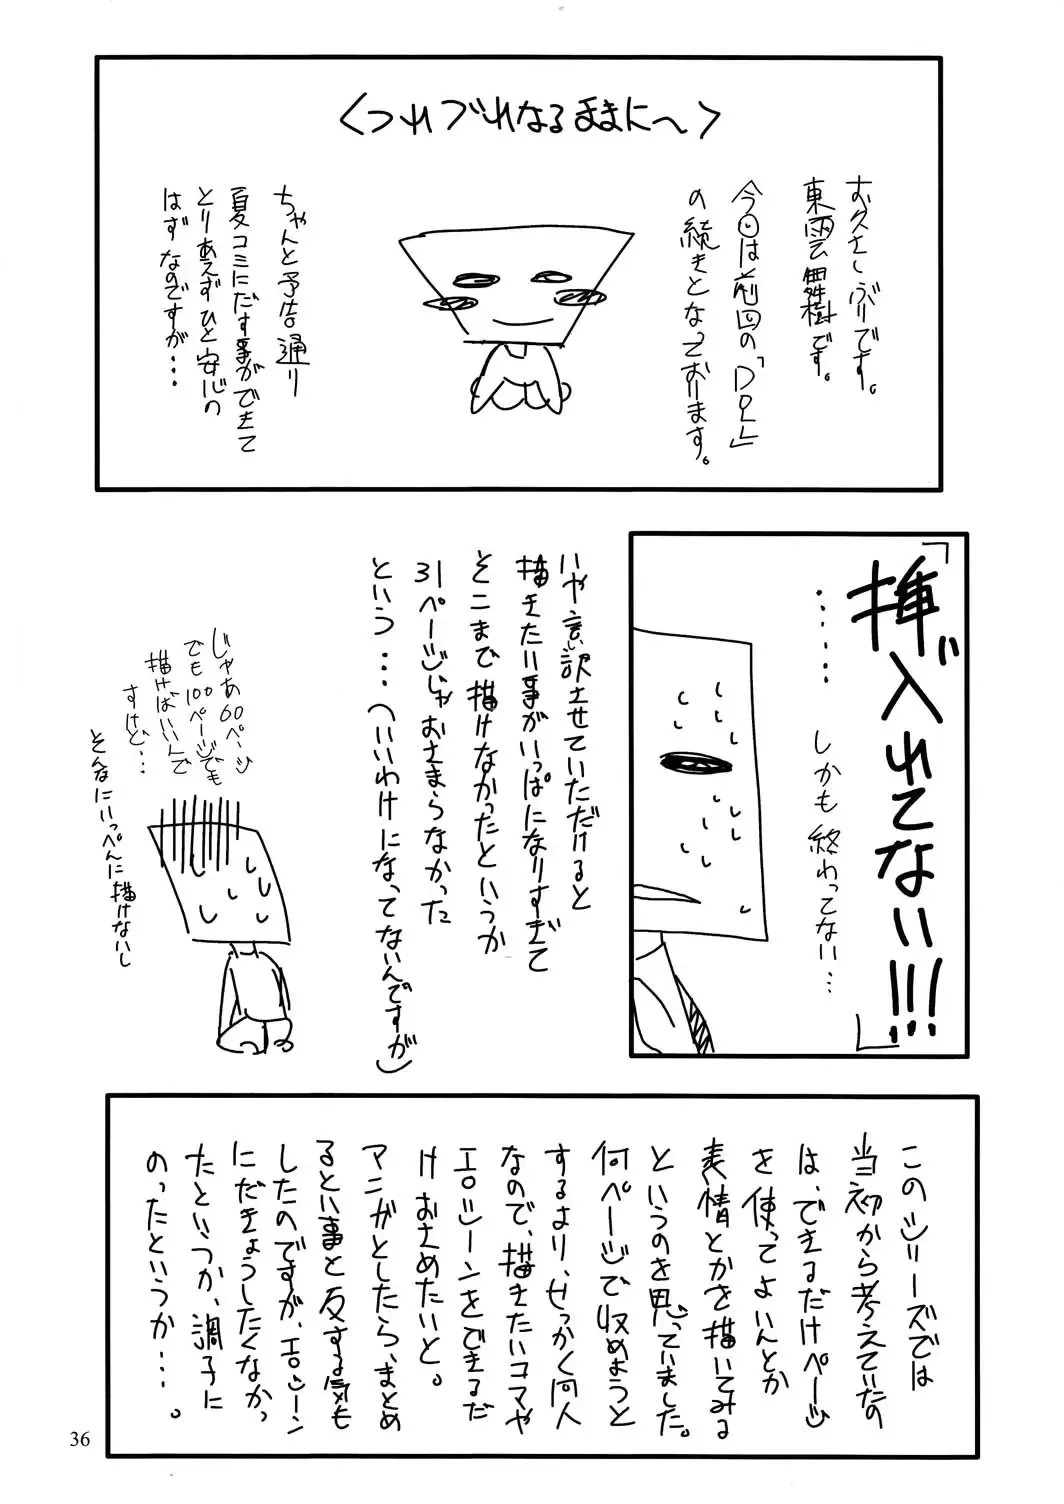 ＜つれづれなるままに～＞
お久しぶりです。
東雲 樹です。
今回は前回の「DOLL」
の続きとなっております。
ちゃんと予告通り
夏コミにだす事ができて
とりあえずひと安心の
はずなのですが・・・
「挿入れてない!!!」
・・・・・・しかも終わってない・・・
いや言い訳させていただけると
描きたい事がいっぱになりすぎて
そこまで描けなかったというか
31ページじゃおさまらなかった
という・・・(いいわけになってないんですが)
じゃあ60ページ
でも100ページでも
描けばいいんで
すけど・・・
そんなにいっぺんに描けないし
このシリーズでは
当初から考えていたの
は、できるだけページ
を使ってよいんとか
表情とかを描いてみる
というのを思っていました。
何ページで収めようと
するより、せっかく同人
なので、描きたいコマや
エロシーンをできるだ
けおさめたいと。
マンガとしたら、まとめ
るという事と反する気も
したのですが、エロシーン
にだきょうしたくなかっ
たというか、調子に
のったというか・・・。
36